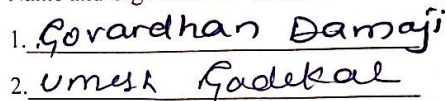 1. Govardhan Damaji
2. Umesh Gadekal